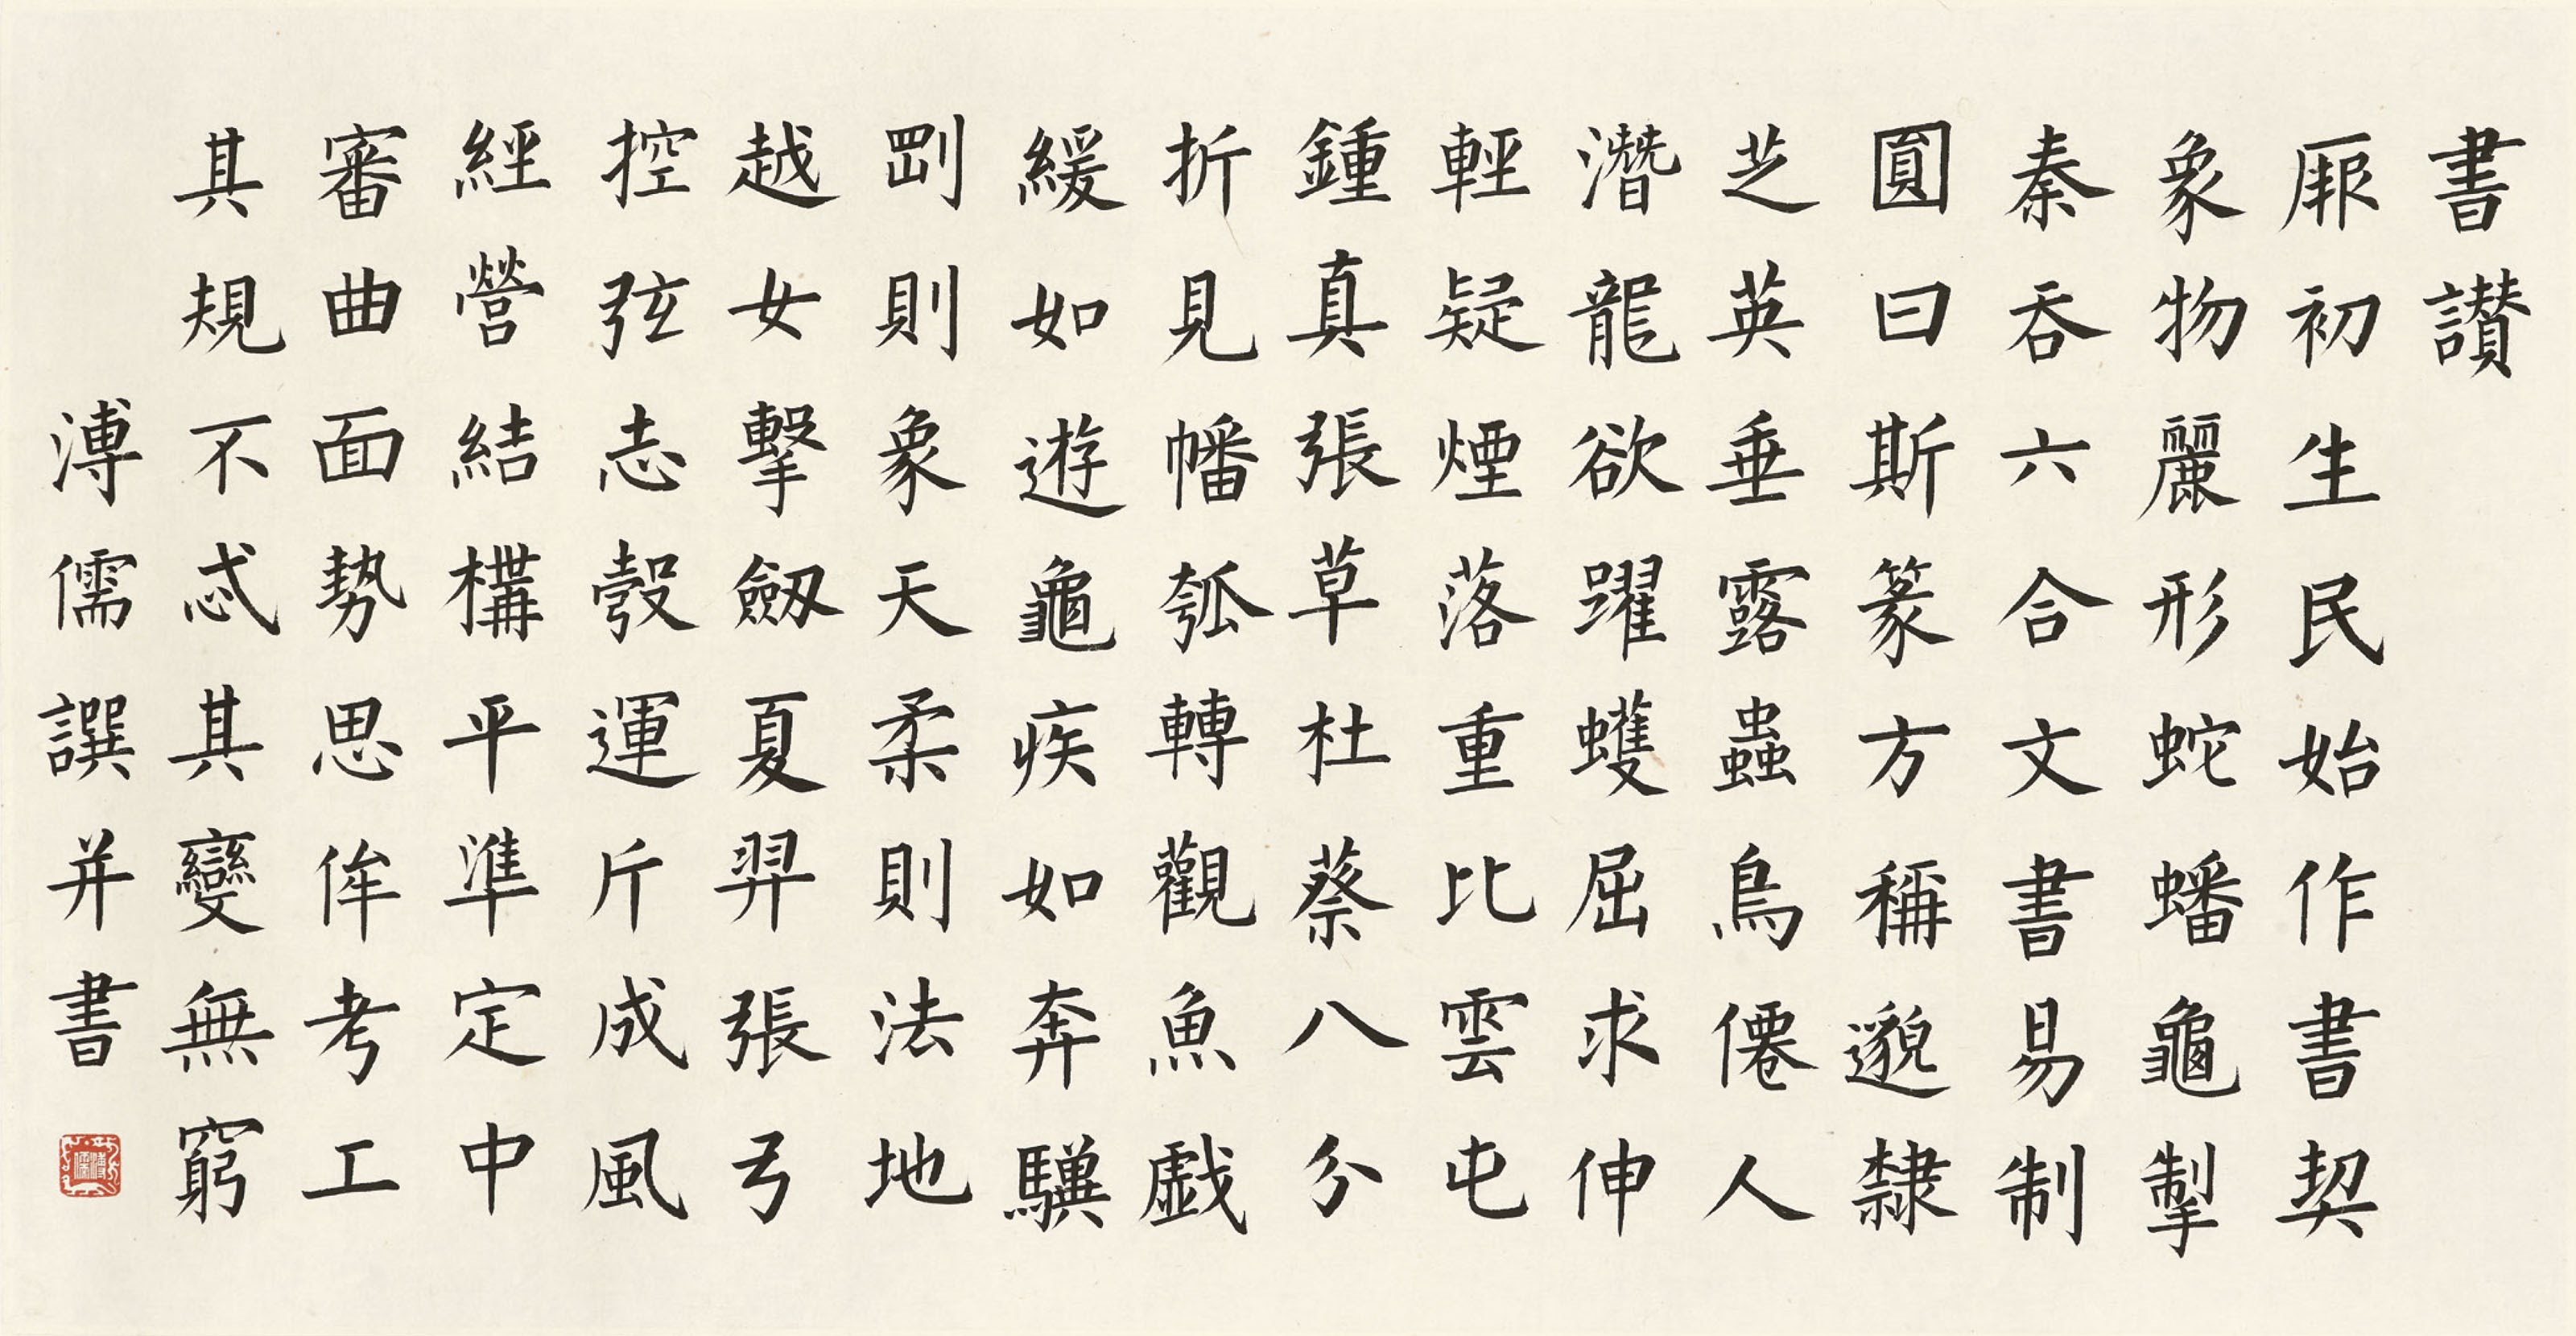 書讃
厥初生民始作書契
象物麗形蛇蟠龜掣
秦吞六合文書易制
圓曰斯篆方稱邈隸
芝英垂露蟲鳥僊人
潛龍欲躍蠖屈求伸
輕疑煙落重比雲屯
鍾真張草杜蔡八分
折見幡瓠轉觀魚戲
緩如遊龜疾如奔驥
剛則象天柔則法地
越女擊劔夏羿張弓
控弦志彀運斤成風
經營結構平準定中
審曲面勢思侔考工
其規不忒其變無窮
溥儒譔并書